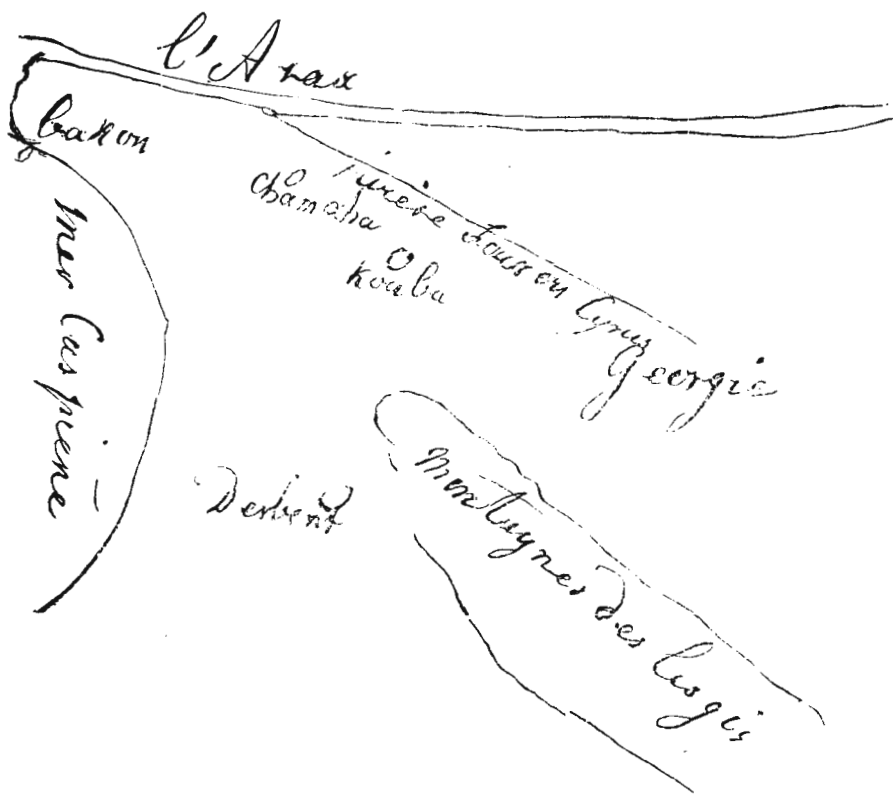 l'Arax
bakou
rivière Kour ou Cyrus
Chamaha
Kouba
Georgie
Mer Caspiene
Derbent
Montagnes des Lesgis